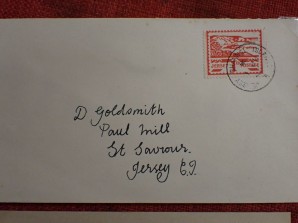 D Goldsmith
Paul Mill
St Saviour.
Jersey C.I.